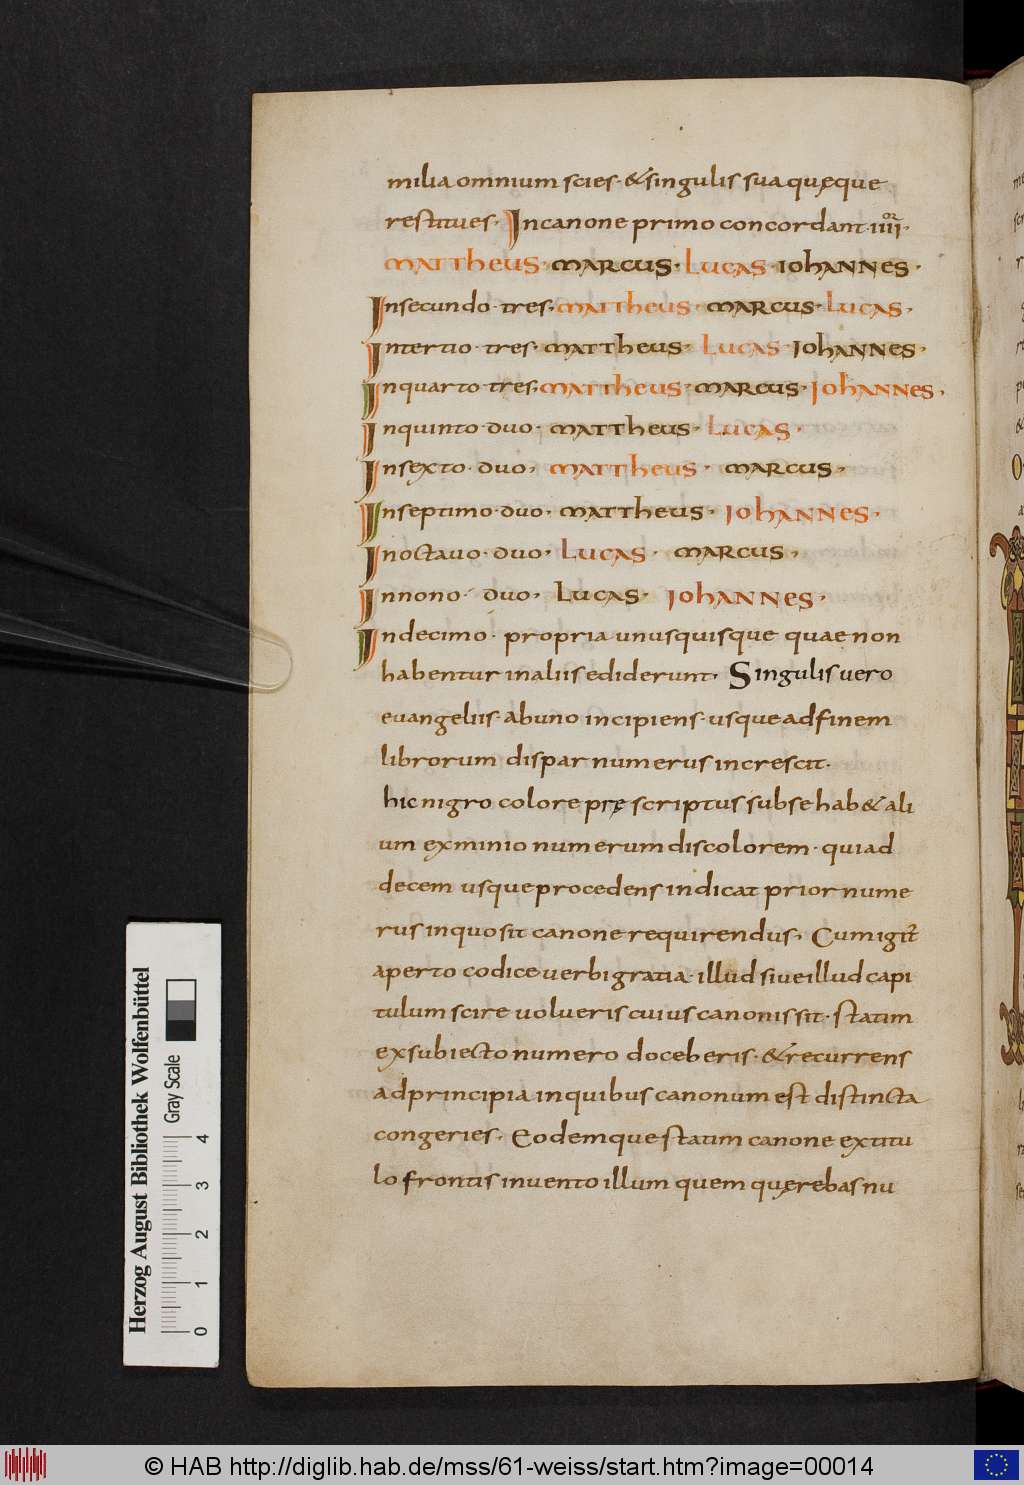 milia omnium scies· &singulis sua quęque
restitues· Incanone primo concordant·iiiior·
MATTheUS· MARCUS· LUCAS· IOhANNES·
Insecundo·tres, MATTheUS· MARCUS· LUCAS·
Intertio·tres· MATTheUS· LUCAS· IOhANNES·
Inquarto·tres, MATTheUS· MARCUS· IOhANNES,
Inquinto·duo· MATTheUS· LUCAS·
Insexto·duo, MATTheUS· MARCUS,
Inseptimo·duo, MATTheUS· IOhANNES·
Inoctauo·duo, LUCAS· MARCUS,
Innono· duo, LUCAS· IOhANNES,
Indecimo· propria unusquisque quae non
habentur inaliis ediderunt, Singulis vero
euangeliis· abuno incipiens· usque adfinem
librorum dispar numerus increscit.
hic nigro colore pręscriptus subse hab& ali
um exminio numerum discolorem· qui ad
decem usque procedens indicat prior nume
rus inquo sit canone requirendus, Cum igit̃
aperto codice verbi gratia· illud siue illud capi
tulum scire uolueris cuius canonis sit· statim
exsubiecto numero doceberis· &recurrens
adprincipia inquibus canonum est distincta
congeries, Eodemque statim canone extitu
lo frontis inuento illum quem quęrebas nu
Herzog August Bibliothek Wolfenbüttel
Gray Scale
0 1 2 3 4
© HAB http://diglib.hab.de/mss/61-weiss/start.htm?image=00014